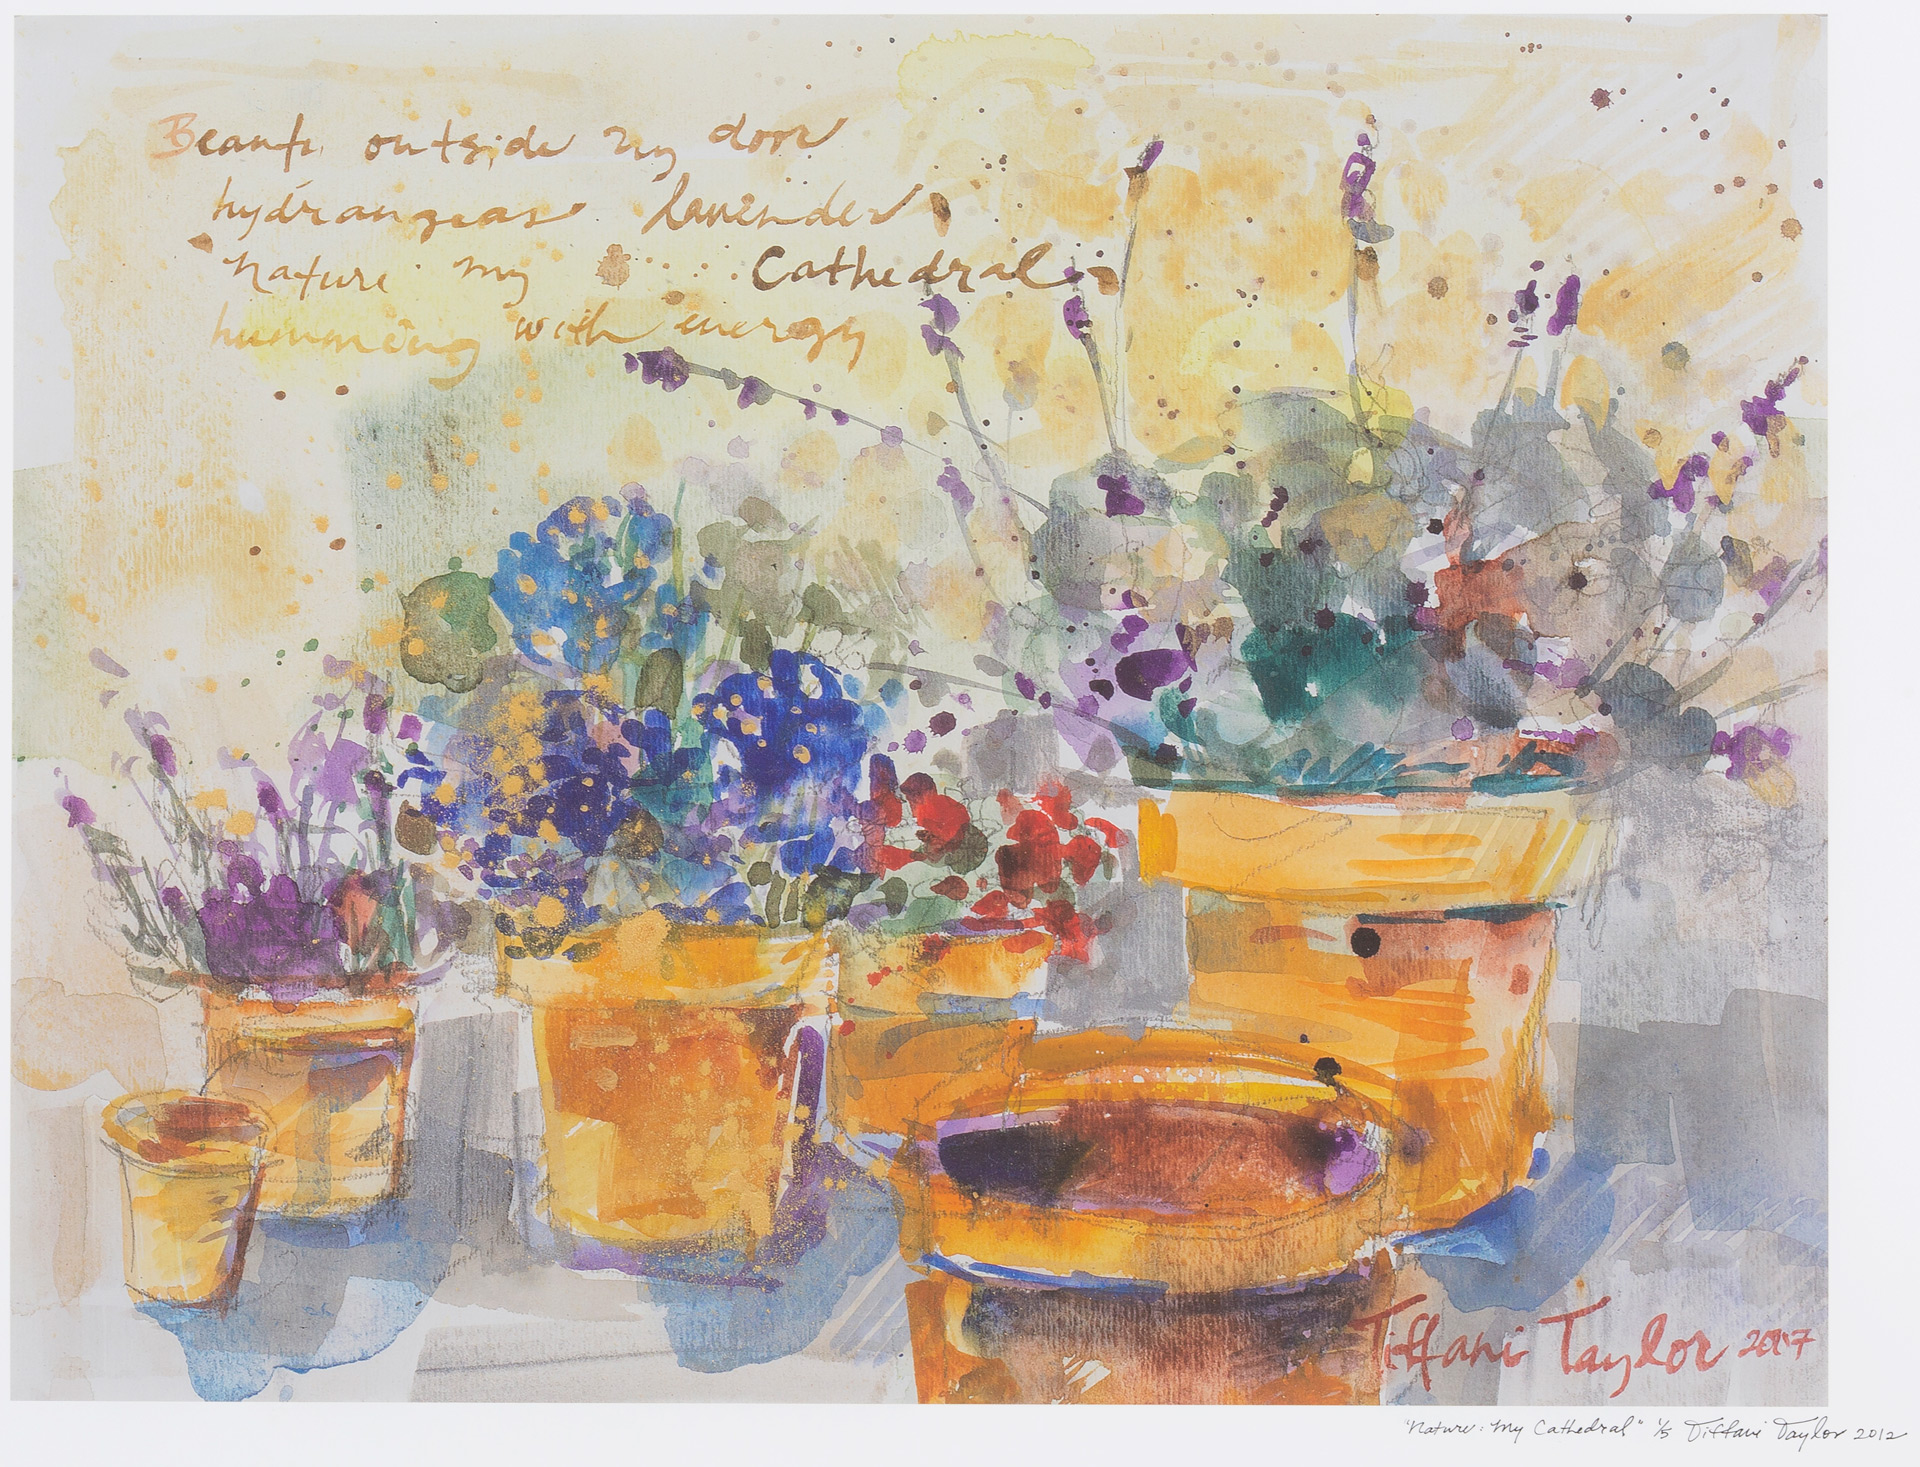 Beauty outside my door
hydrangeas lavender
nature my Cathedral
humming with energy
Tiffani Taylor 2007
"Nature: My Cathedral" 1/5 Tiffani Taylor 2012